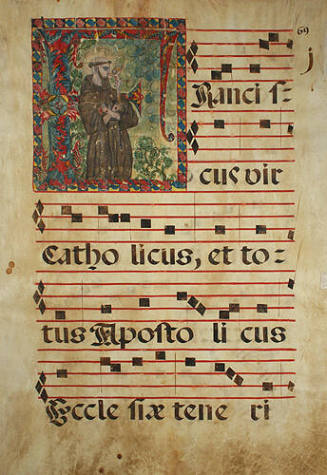 69
FRanci s=
cus vir
Catho licus, et to=
tus Aposto li cus
Eccle siæ tene ri